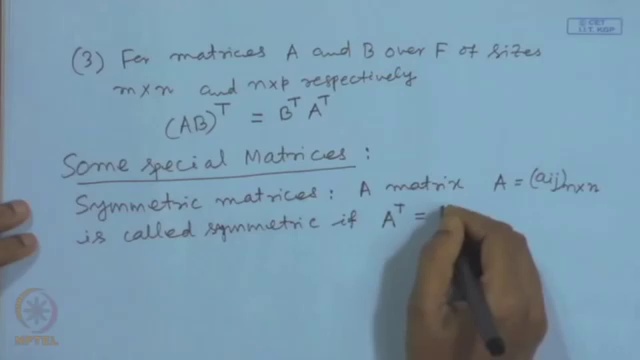 © CET
I.I.T. KGP
(3) For matrices A and B over F of sizes
m×n and n×p respectively
(AB)^T = B^T A^T
Some special Matrices :
Symmetric matrices : A matrix A = (aij)n×n
is called symmetric if A^T =
NPTEL